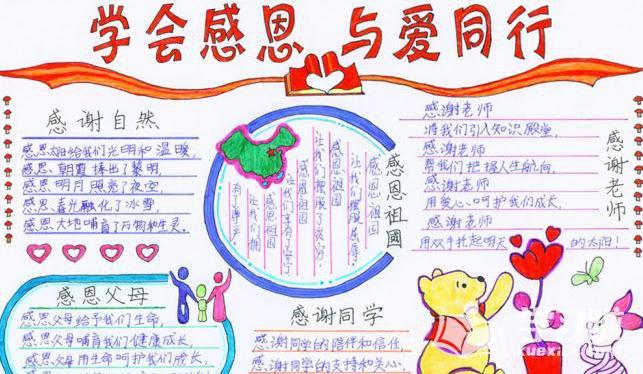 学会感恩 与爱同行
感谢自然
感恩太阳给我们光明和温暖,
感恩朝霞捧出了黎明,
感恩明月照亮了夜空,
感恩春光融化了冰雪,
感恩大地哺育了万物和生灵。
感恩祖國
感恩祖国
让我们摆脱屈辱。
感恩祖国
让我们摆脱了贫穷,
感恩祖国
让我们享有了安宁
感恩祖国
让我们拥
有了尊严。
感谢老师
感谢老师
将我们引入知识殿堂,
感谢老师
帮我们把握人生航向,
感谢老师
用爱心呵护我们成长,
感谢老师
用双手托起明天
的太阳!
感恩父母
感恩父母给予我们生命,
感恩父母哺育我们健康成长,
感恩父母用生命呵护我们成长,
感谢同学
感谢同学的陪伴和信任,
感谢同学的支持和关心,